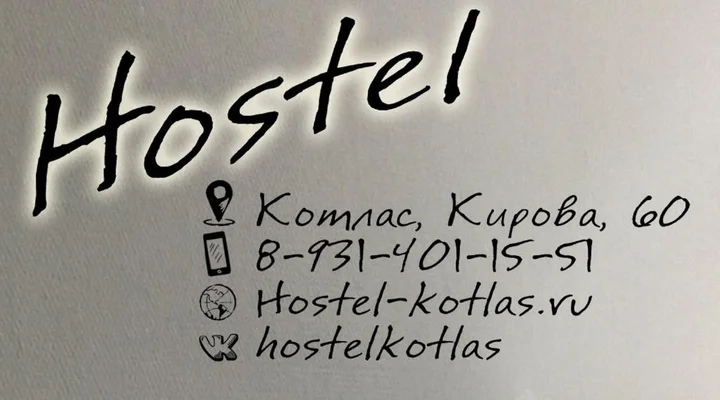 Hostel
Котлас, Кирова, 60
8-931-401-15-51
Hostel-kotlas.ru
hostelkotlas